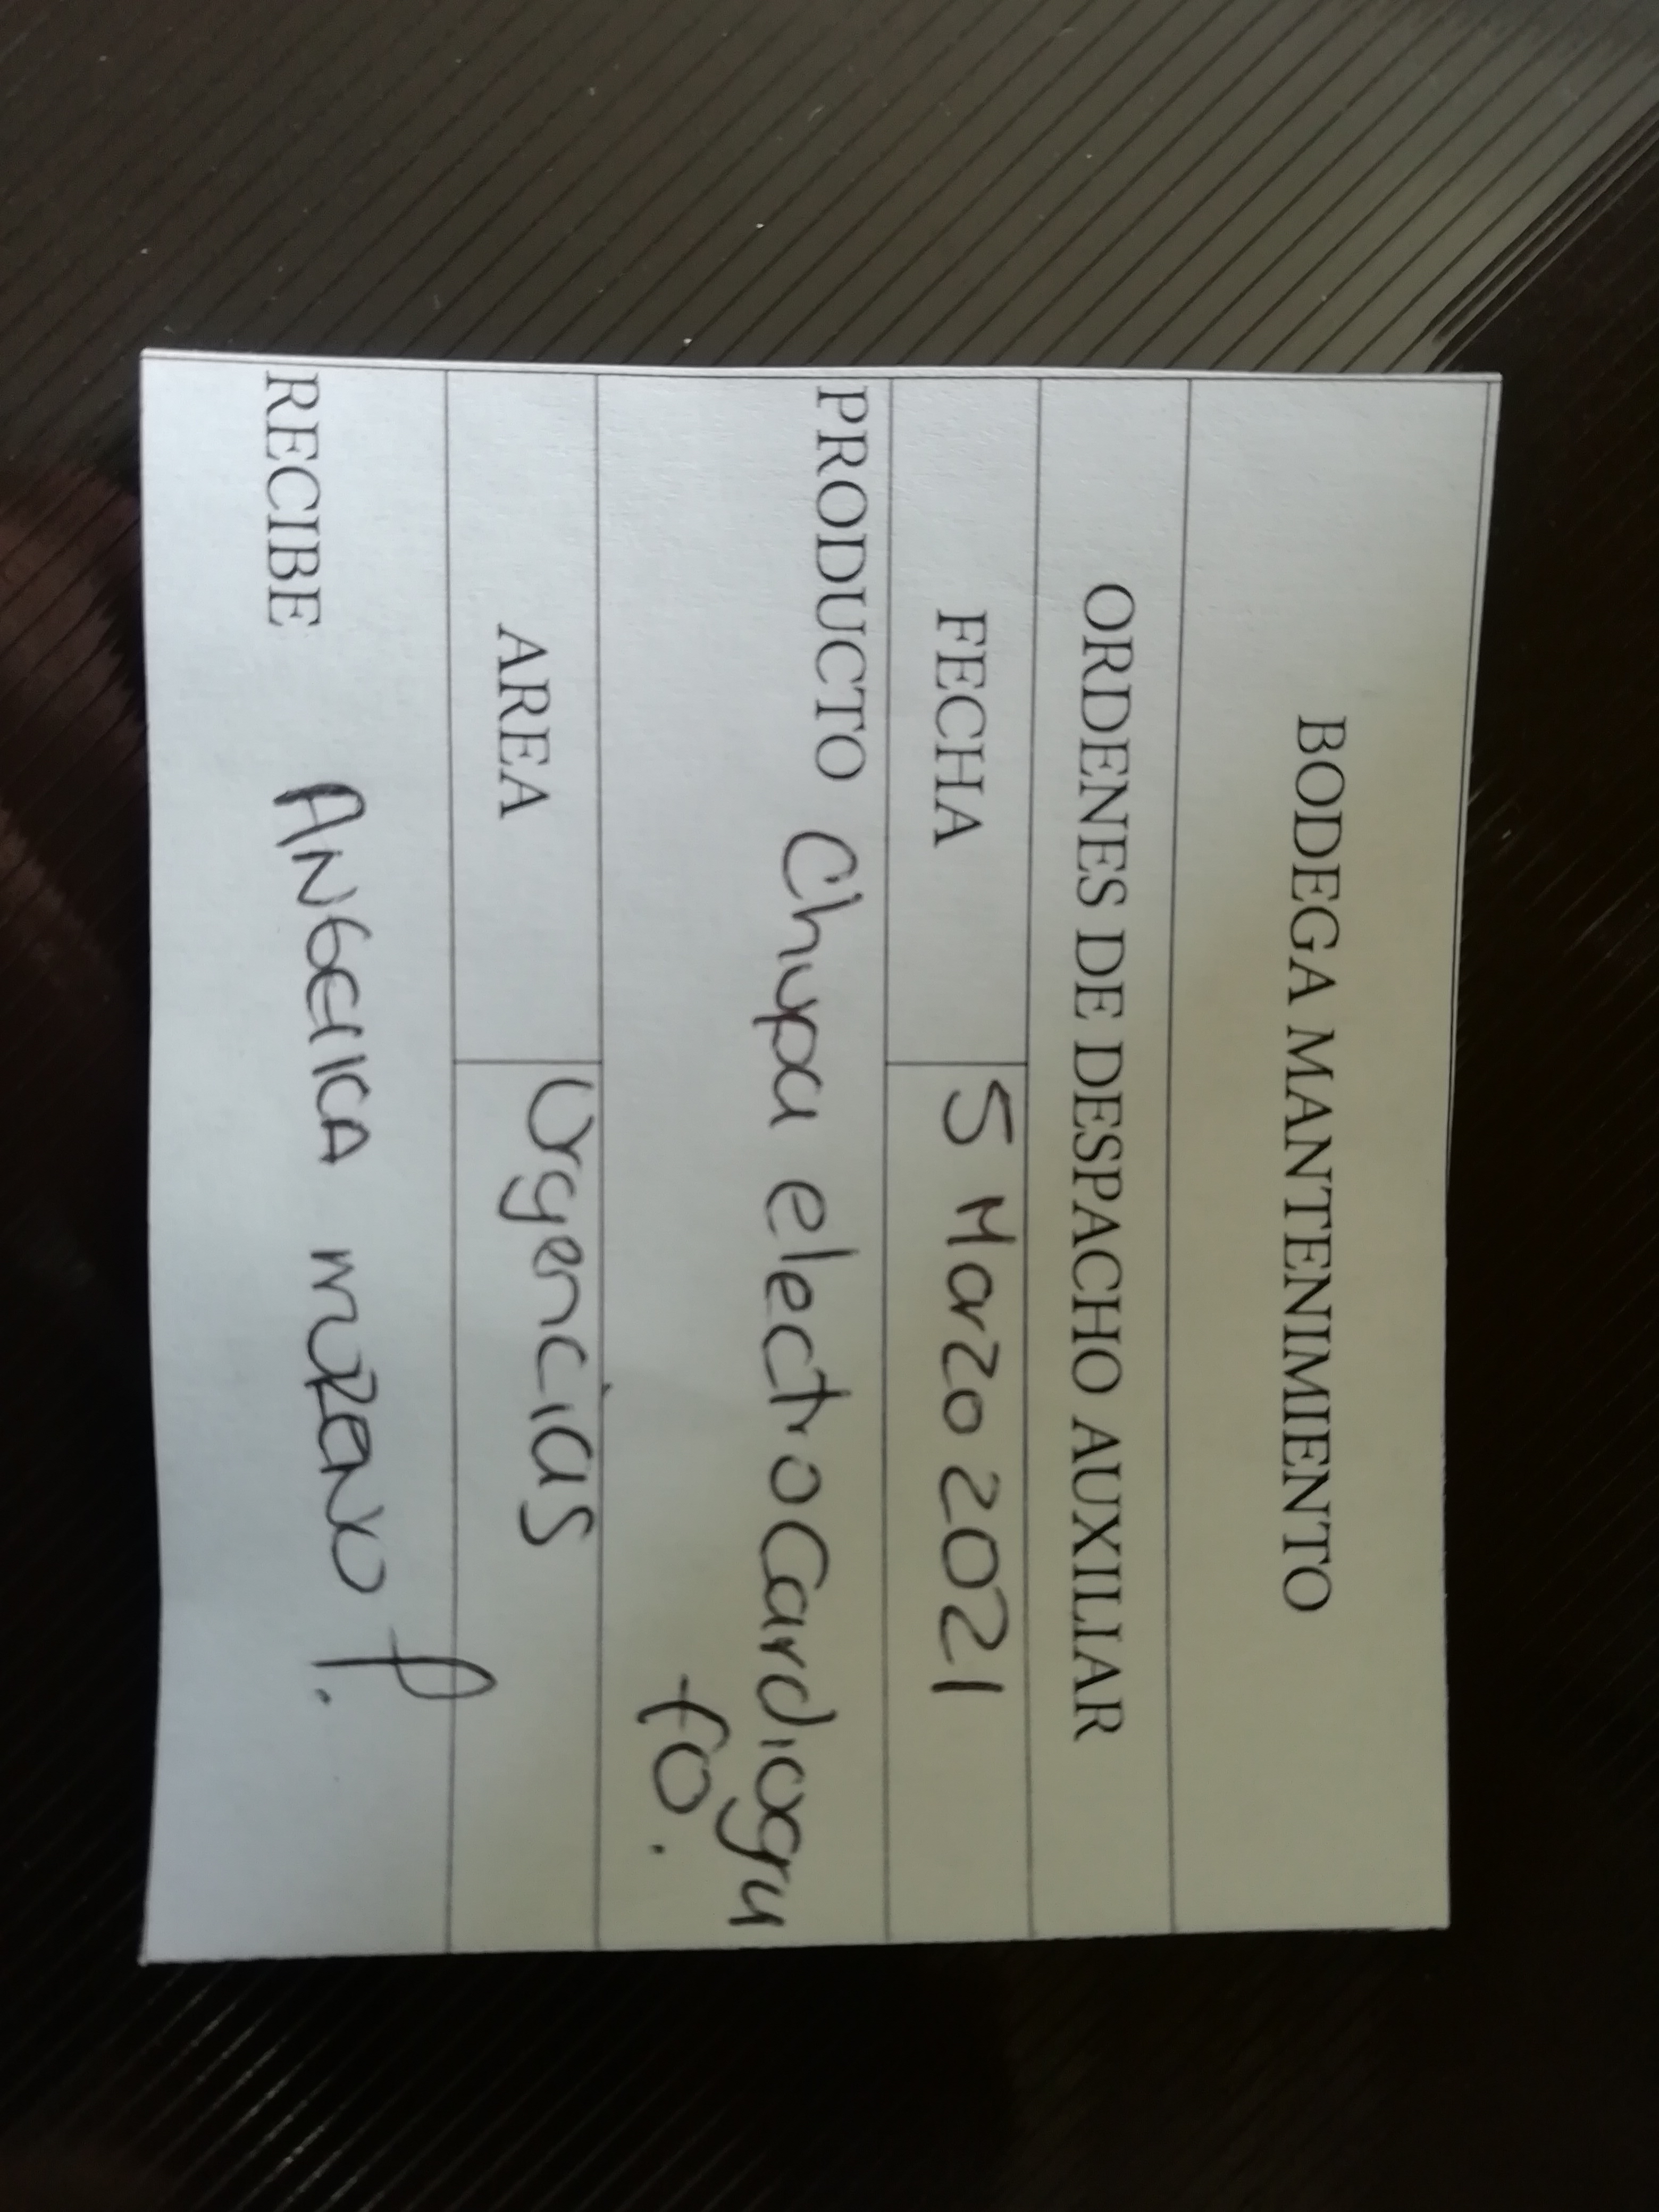 BODEGA MANTENIMIENTO
ORDENES DE DESPACHO AUXILIAR
FECHA 5 Marzo 2021
PRODUCTO Chupa electrocardiogra
fo.
AREA Urgencias
RECIBE ANGELICA MORENO P.